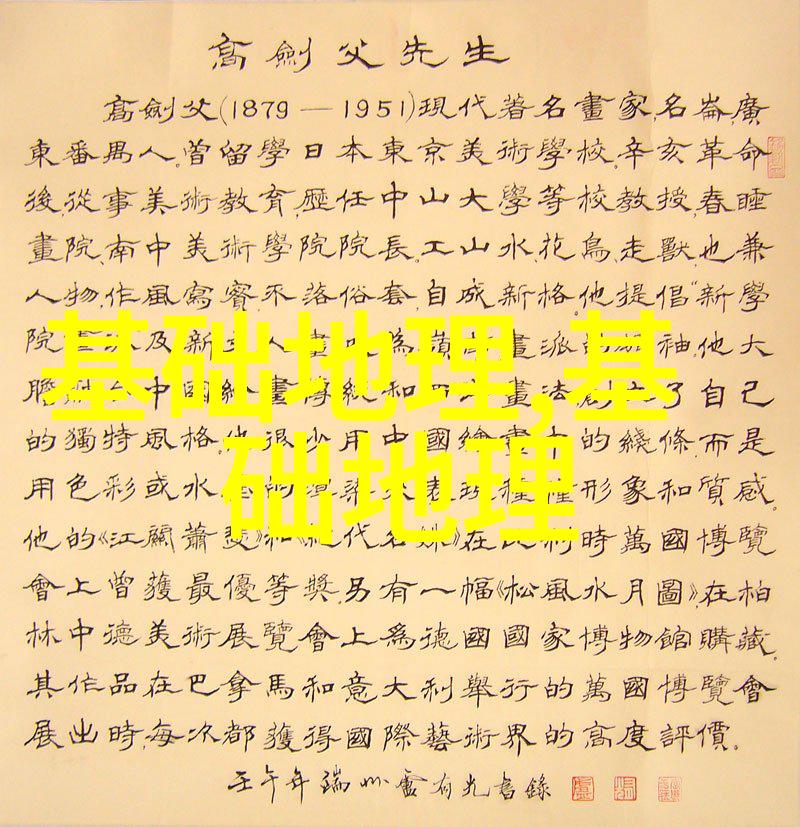 高劍父先生
高劍父(1879—1951)現代著名畫家,名崙,廣
東番禺人。曾留學日本東京美術學校.辛亥革命
後,從事美術教育,歷任中山大學等校教授,春睡
畫院,南中美術學院院長。工山水,花鳥,走獸,也兼
人物,作風寫實,不落俗套,自成新格。他提倡“新學
院 及新 人 為嶺 畫派的 袖.他大
膽 中國繪畫傳統和 畫法 了自己
的獨特風格。他很少用中國繪畫 的綫條,而是
用色彩或水 染 表現 形象和質感。
他的《江關蕭瑟》和《 代名 》在比利時萬國博覽
會上曾獲最優等獎.另有一幅《松風水月圖》,在柏
林中德美術展覽會上為德國國家博物館購藏.
其作品在巴拿馬和意大利舉行的萬國博覽會
展出時,每次都獲得國際藝術界的高度評價。
壬午年端州盧有光書錄
基础地理,基
础地理